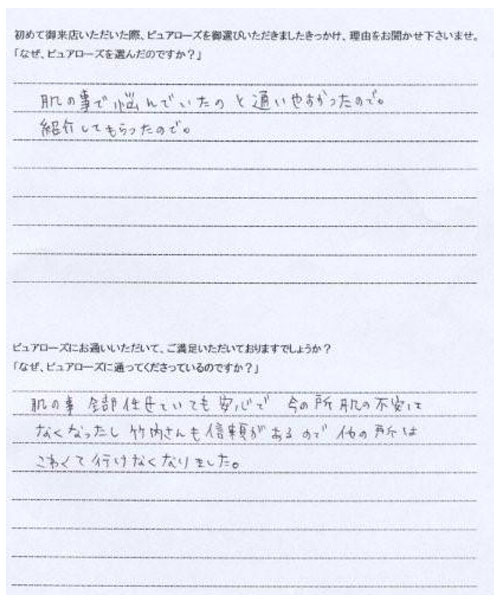 初めて御来店いただいた際、ピュアローズを御選びいただきましたきっかけ、理由をお聞かせ下さいませ。
「なぜ、ピュアローズを選んだのですか？」
肌の事で悩んでいたのと通いやすかったので。
紹介してもらったので。
ピュアローズにお通いいただいて、ご満足いただいておりますでしょうか？
「なぜ、ピュアローズに通ってくださっているのですか？」
肌の事全部任せていても安心で 今の所肌の不安は
なくなったし竹内さんも信頼があるので他の所は
こわくて行けなくなりました。